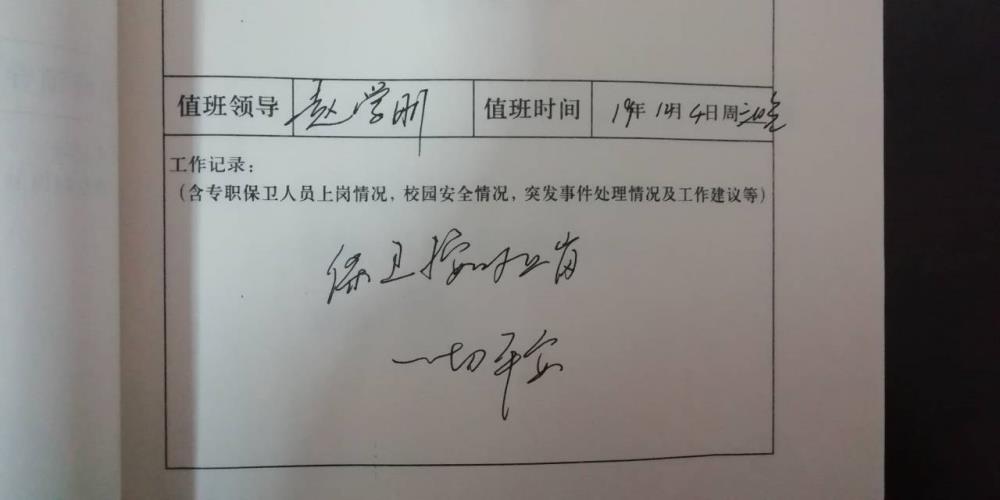 值班领导 赵学明 值班时间 19年12月4日周三晚
工作记录：
（含专职保卫人员上岗情况，校园安全情况，突发事件处理情况及工作建议等）
保卫按时上岗
一切平安